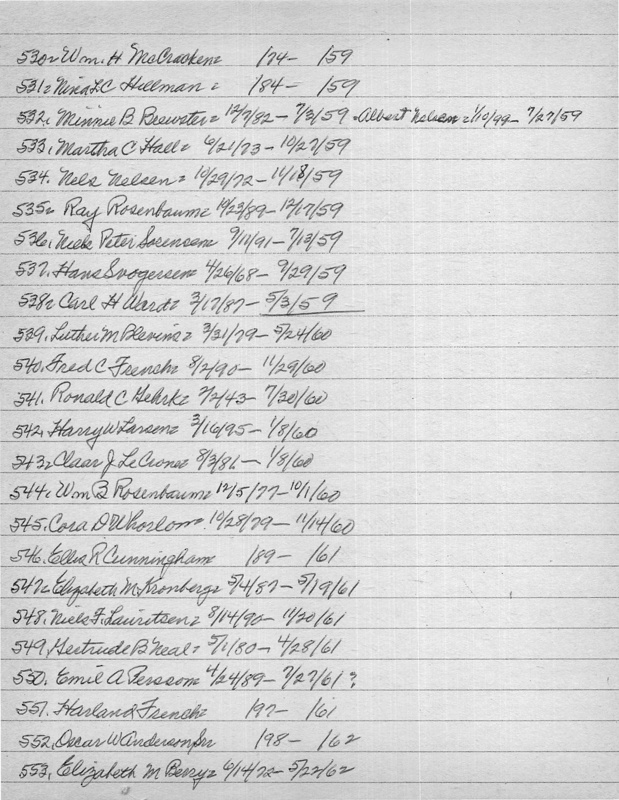 530. Wm. H McCracken= /74- /59
531. Nina L C Hellman = /84- /59
532. Minnie B Brewster= 12/7/82- 7/3/59 - Albert Nelsen = 1/10/99- 7/27/59
533. Martha C Hall= 6/21/73- 10/27/59
534. Nels Nelsen= 10/29/72- 11/18/59
535. Ray Rosenbaum= 10/23/89- 12/17/59
536. Niels Peter Sorensen= 9/11/91- 7/13/59
537. Hans Svogersen= 4/26/68- 9/29/59
538. Carl H Wardt= 3/17/87- 5/3/59
539. Luther M Blevins= 3/31/79- 5/24/60
540. Fred C French= 8/2/90- 11/29/60
541. Ronald C Gehrk= 2/2/43- 7/30/60
542. Harry W Larsen= 3/16/95- 1/8/60
543. Claar J LeCrone= 8/3/86- 1/8/60
544. Wm B Rosenbaum= 12/5/77- 10/1/60
545. Cora D Whorlow= 10/28/79- 11/14/60
546. Ellis R Cunningham /89- /61
547. Elizabeth M Kronberg= 5/4/87- 5/19/61
548. Niels F. Lauritsen= 8/14/90- 11/20/61
549. Gertrude B Neal= 5/1/80- 4/28/61
530. Emil A Persson= 4/24/89- 7/27/61 ?
551. Harland French= /97- /61
552. Oscar W Anderson Sr= /98- /62
553. Elizabeth M Berry= 6/14/72- 5/22/62